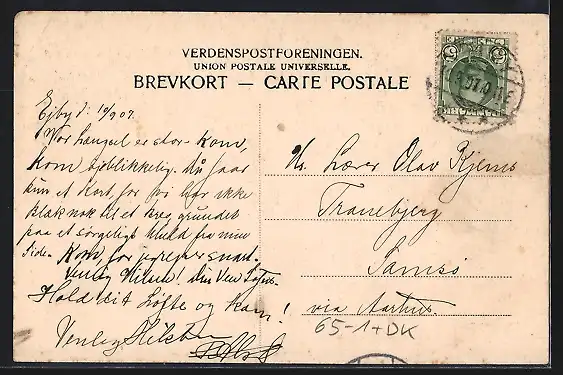 VERDENSPOSTFORENINGEN.
UNION POSTALE UNIVERSELLE.
BREVKORT — CARTE POSTALE
Ejby d. 10/9 07.
Vor Længsel er stor - Kom,
Kom øjeblikkelig. Du faar
kun et Kort, for vi har ikke
Blæk nok til et Brev grundet
paa et sørgeligt Uheld fra min
Side. Kom, for jeg rejser snart.
Venlig Hilsen! Din Ven
Hold dit Løfte og kom!
Venlig Hilsen
Hr. Lærer Olav Kjems
Tranebjerg
Samsø
via Aarhus.
65-1+DK